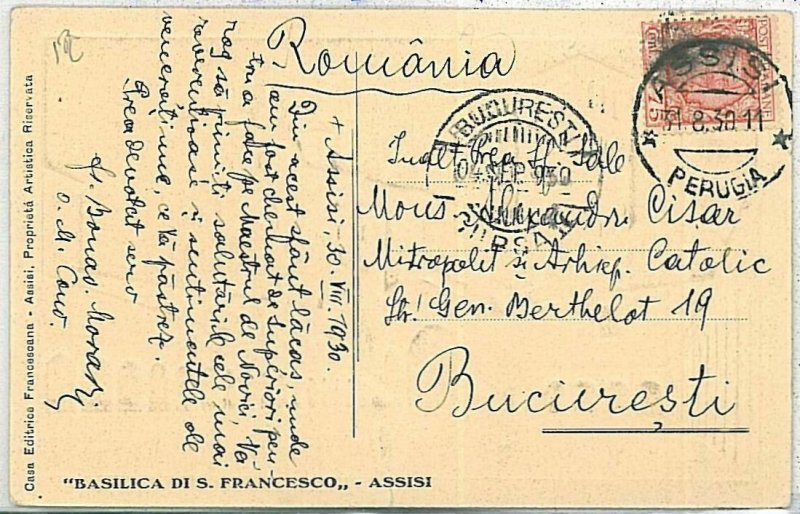 România
+ Assisi, 30. VIII. 1930.
Din acest sfânt lăcaș, unde
am fost chemat de superiori pen-
tru a face pe Maestrul de Novici, Vă
rog să primiți salutările cele mai
reverențioase și sentimentele de
venerațiune, ce Vă păstrez.
Prea devotat serv
fr. Bonav. Morariu
O. M. Conv.
Înalt Prea Sf. Sale
Mons. Alexandru Cisar
Mitropolit și Arhiep. Catolic
Str. Gen. Berthelot 19
București
BUCUREȘTI
04 SEP. 930
SOSIRE
ASSISI
31.8.30.11
PERUGIA
POSTE ITALIANE
Cent. 75
Casa Editrice Francescana - Assisi, Proprietà Artistica Riservata
"BASILICA DI S. FRANCESCO„ - ASSISI